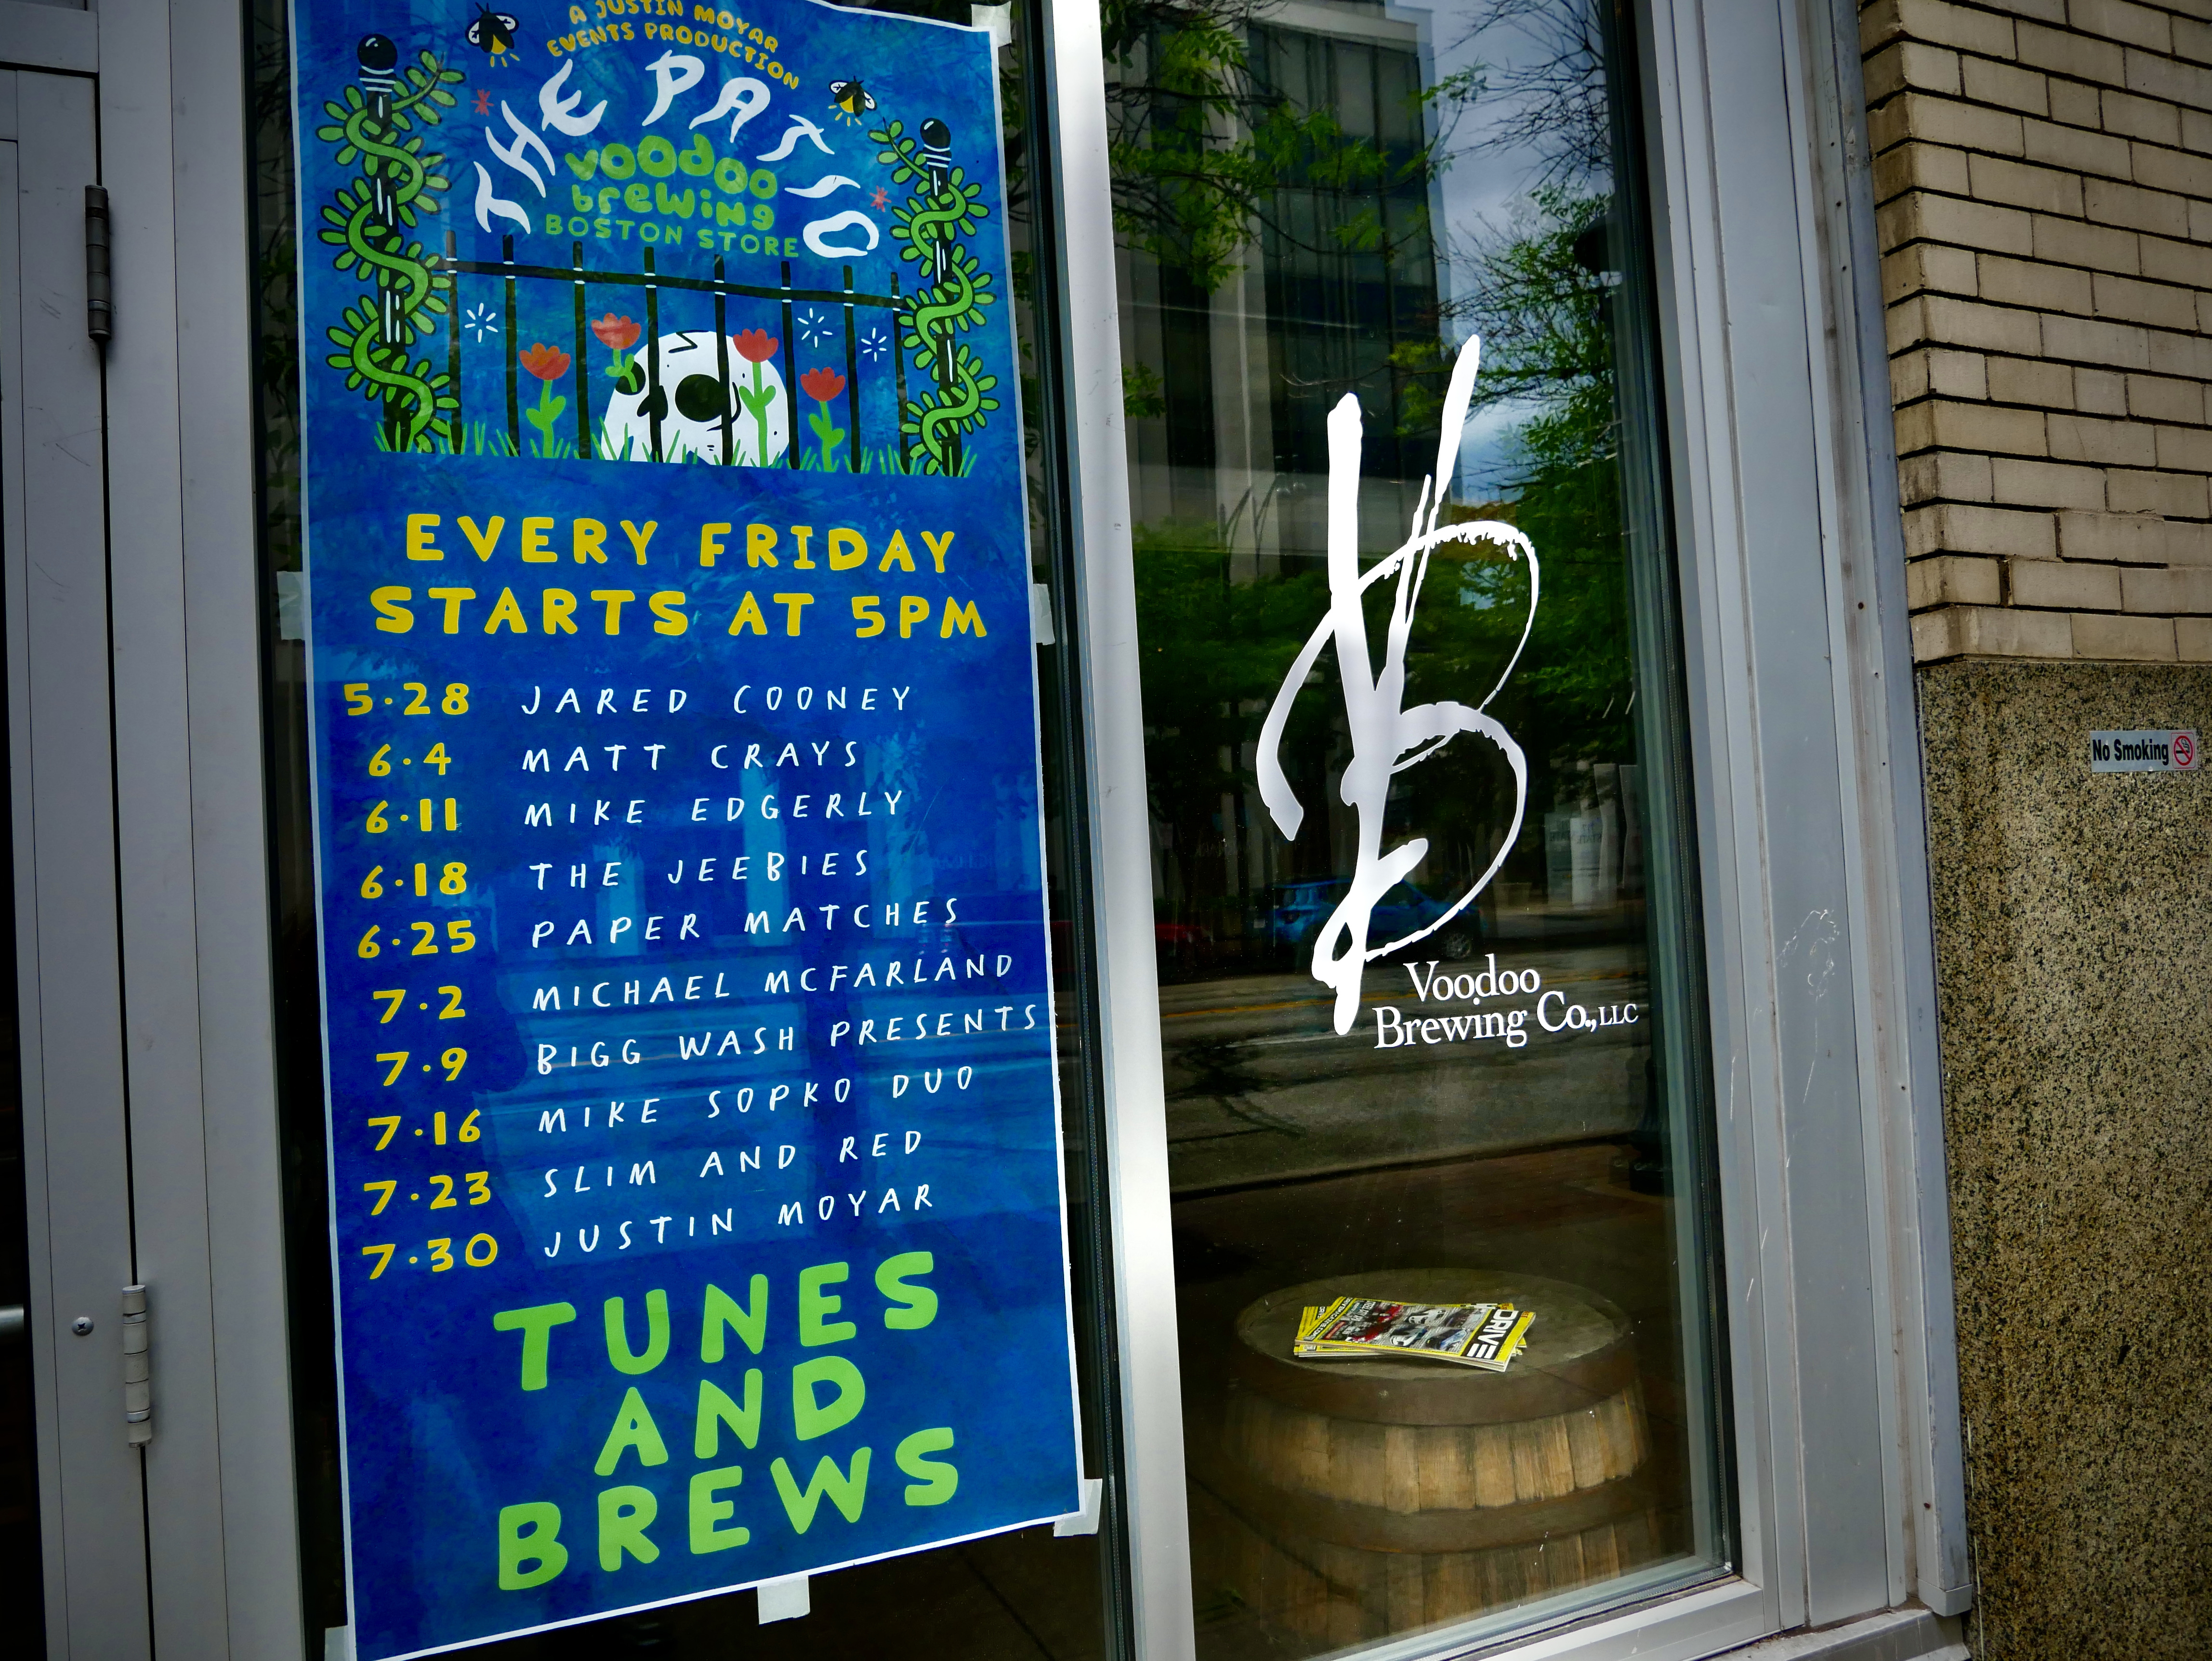 A JUSTIN MOYAR
EVENTS PRODUCTION
THE PATIO
voodoo
brewing
BOSTON STORE
EVERY FRIDAY
STARTS AT 5PM
5·28 JARED COONEY
6·4 MATT CRAYS
6·11 MIKE EDGERLY
6·18 THE JEEBIES
6·25 PAPER MATCHES
7·2 MICHAEL MCFARLAND
7·9 BIGG WASH PRESENTS
7·16 MIKE SOPKO DUO
7·23 SLIM AND RED
7·30 JUSTIN MOYAR
TUNES
AND
BREWS
VB
Voodoo
Brewing Co., LLC
No Smoking
DRIVE